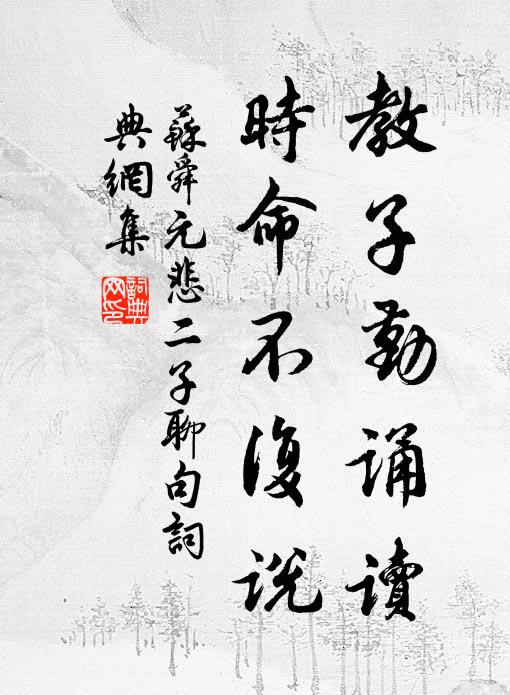 教子勤誦讀
時命不復說
蘇舜元悲二子聊句詞
典網集
詞典
网印